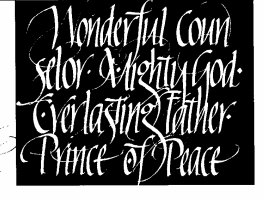 Wonderful Coun
selor · Mighty God ·
Everlasting Father ·
Prince of Peace